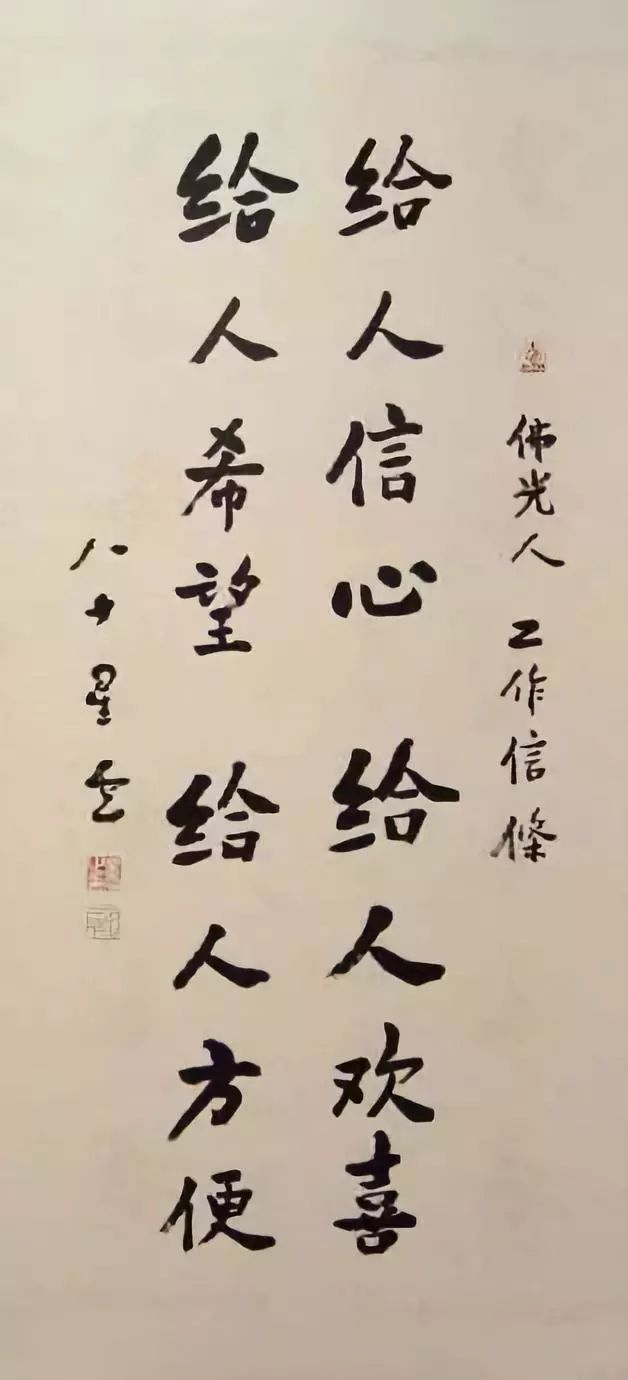 佛光人 工作信條
给人信心 给人欢喜
给人希望 给人方便
八十星云